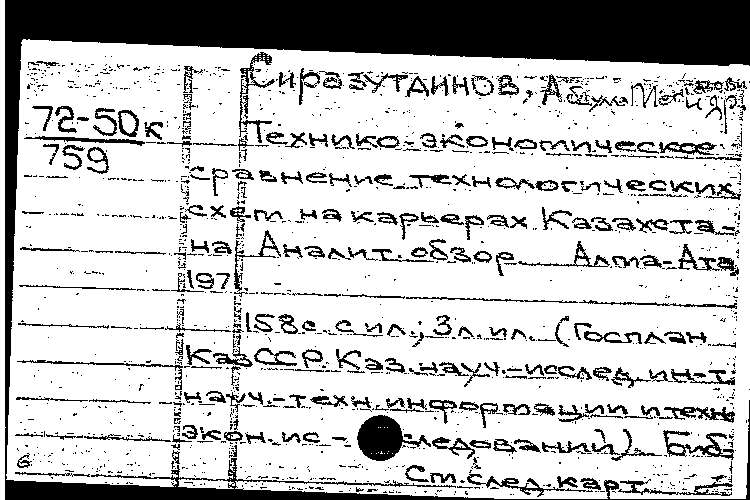 Сиразутдинов,
72-50к
759
Технико-экономическое
сравнение технологических
схем на карьерах Казахста-
на Аналит. обзор Алма-Ата
1971.
158с. с ил.; 3л. ил. (Госплан
КазССР. Каз. науч.-исслед. ин-т.
науч.-техн. информации и техн.
экон. ис-следований). Биб.
См. след. карт.